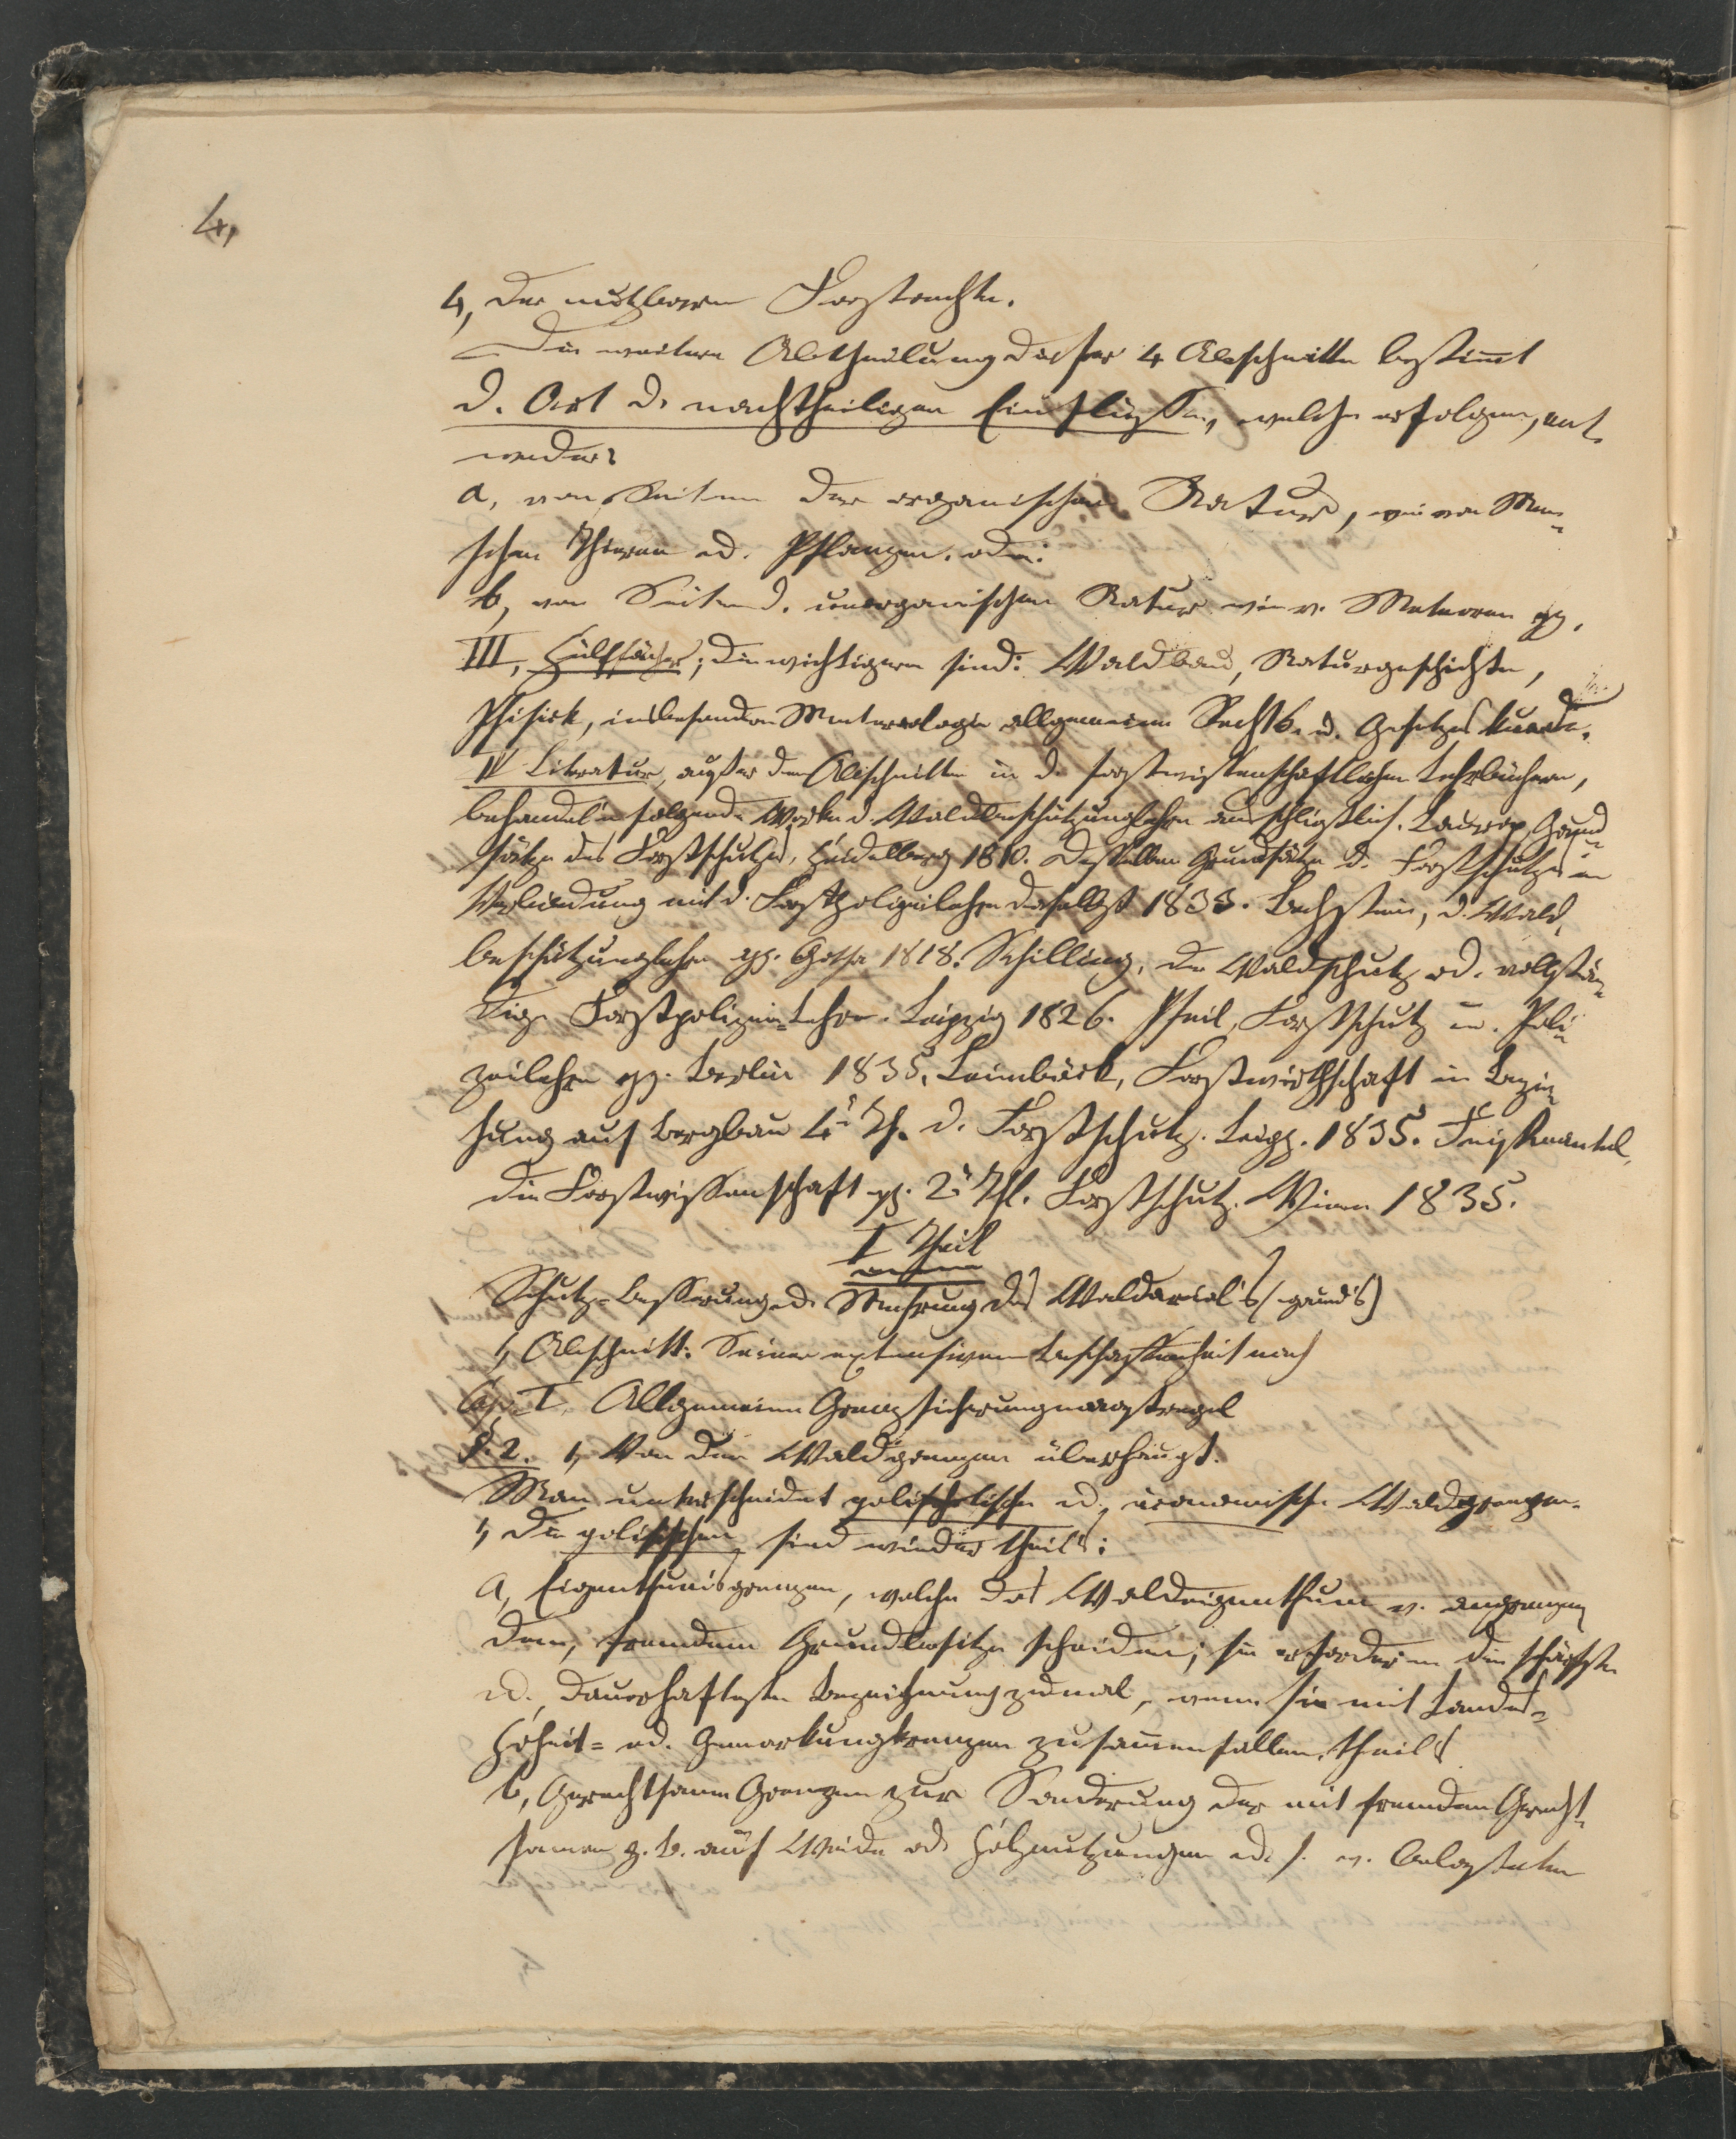 4,
4, der nutzbaren Forstrechte.
Die weitere Abtheilung dieser 4 Abschnitte bestimt
d. Art d. nachtheiligen Einflüsse, welche erfolgen, ent-
weder
a, von Seiten der organischen Natur, wie von Men-
schen Thieren od. Pflanzen. oder:
b, von Seiten d. unorganischen Natur wie v. Meteoren pp.
III, Hülfsfächer; die wichtigern sind: Waldbau, Naturgeschichte,
Phisick, insbesondere Meteorologie allgemeine Rechts- u. Gesetzeskunde.
IV Literatur, außer den Abschnitten in d. forstwissenschaftlichen Lehrbüchern,
behandeln folgende Werke d. Waldbeschützungslehre ausschließlich. Laurop, Grund-
sätze des Forstschutzes, Heidelberg 1810. Desselben Grundsätze d. Forstschutzes in
Verbindung mit d. Forstpolizeilehre daselbst 1833. Bechstein, d. Wald-
beschützungslehre pp. Gotha 1818. Schilling, der Waldschutz od. vollstän-
dige Forstpolizei-Lehre. Leipzig 1826. Pfeil, Forstschutz u. Poli-
zeilehre pp. Berlin 1835. Leimböck, Forstwirthschaft in Bezie-
hung auf Bergbau 4r Th. d. Forstschutz. Leipz. 1835. Feistmantel,
die Forstwissenschaft pp. 2r Thl. Forstschutz. Wien 1835.
I Theil
Schutz-Besserung od. Mehrung des Waldareal's (-grund's)
1, Abschnitt: Seiner extensiven Beschaffenheit nach
Cap. I, Allgemeine Grenzsicherungsmaasregel
§. 2. 1, Von den Waldgrenzen überhaupt.
Man unterscheidet politische u. öconomische Waldgrenzen.
1, Die politischen sind wieder theils:
a, Eigenthumsgrenzen, welche das Waldeigenthum v. angrenzen-
dem, fremdem Grundbesitze scheiden; sie erfordern die schärfste
u. dauerhafteste Bezeichnung zumal, wenn sie mit Landes-
hoheit- od. Gemarkungsgrenzen zusamenfallen. theils
b, Gerechtsame Grenzen zur Sonderung der mit fremden Gerecht-
samen z. B. auf Weide od. Holznutzungen u. s. w. belasteten